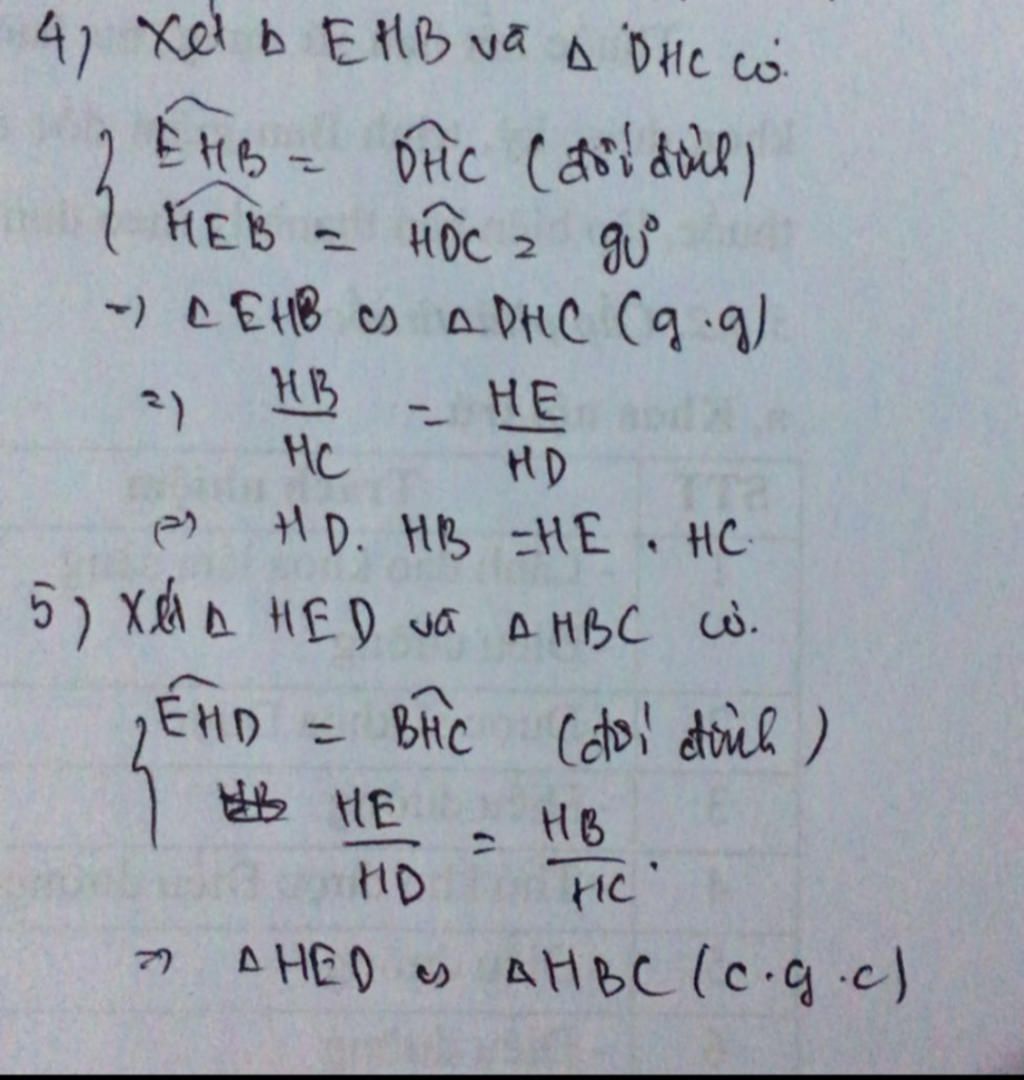 4) Xét Δ EHB và Δ DHC có.
{ EHB^ = DHC^ (đối đỉnh)
HEB^ = HDC^ = 90°
-> Δ EHB ∽ Δ DHC (g.g)
=> HB/HC = HE/HD
=> HD. HB = HE . HC.
5) Xét Δ HED và Δ HBC có.
{ EHD^ = BHC^ (đối đỉnh)
HE/HD = HB/HC.
=> Δ HED ∽ Δ HBC (c.g.c)